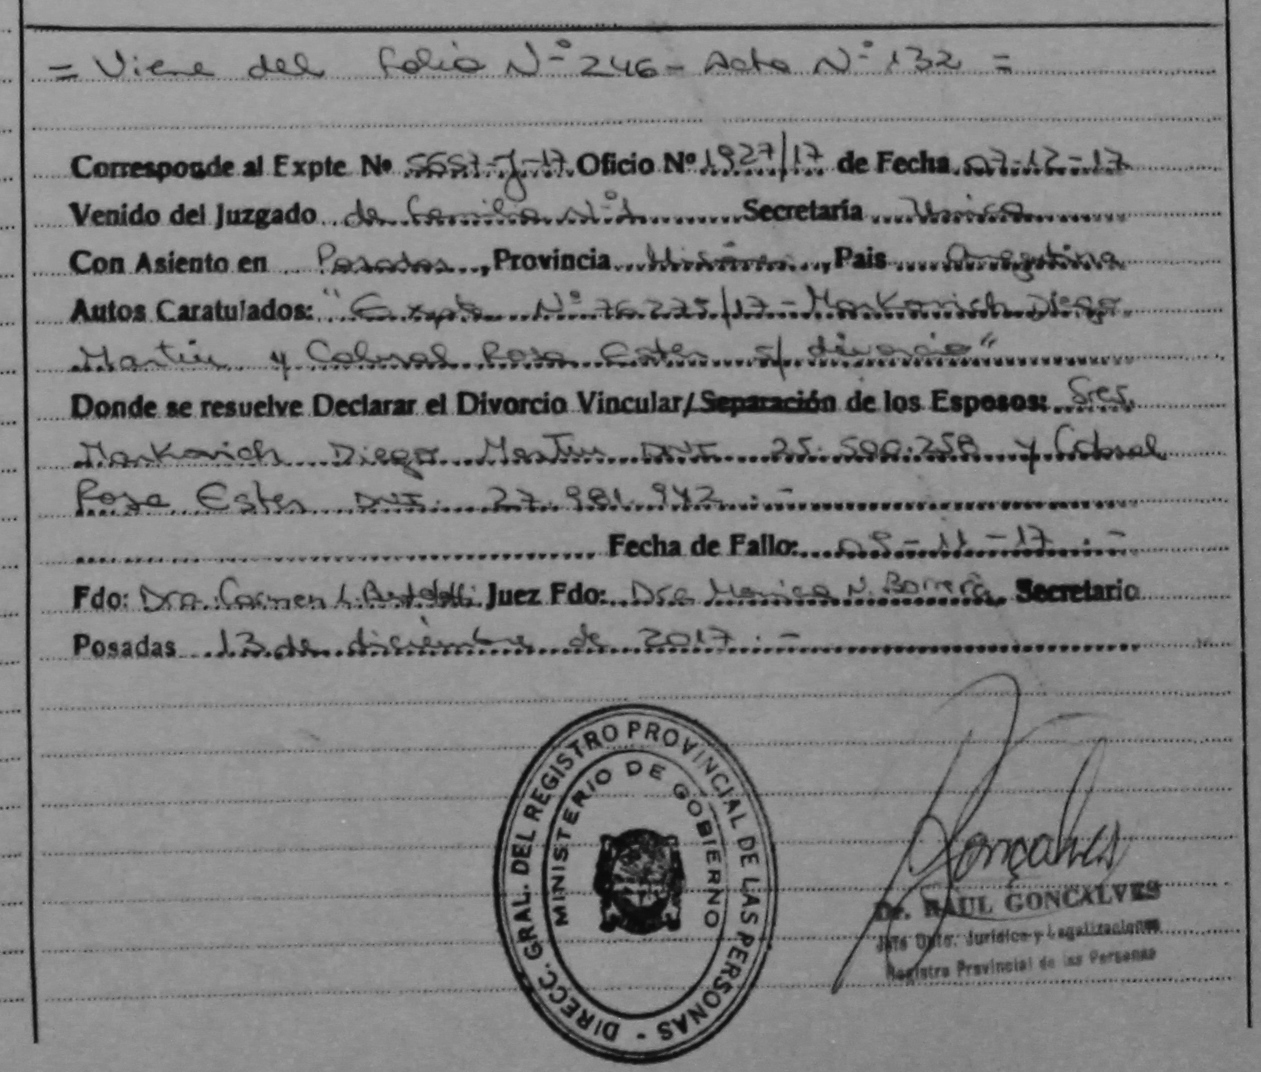 = Viene del folio Nº 246 - Acta Nº 132 =
Corresponde al Expte Nº 5657-J-17 Oficio Nº 1927/17 de Fecha 07-12-17
Venido del Juzgado de Familia Nº 1 Secretaría Unica
Con Asiento en Posadas, Provincia Misiones, Pais Argentina
Autos Caratulados: "Expte. Nº 76.275/17 - Markovich Diego
Martin y Cabral Rosa Ester s/ divorcio"
Donde se resuelve Declarar el Divorcio Vincular/Separación de los Esposos: Sres.
Markovich Diego Martin DNI 25.500.258 y Cabral
Rosa Ester DNI. 27.981.942.-
Fecha de Fallo: 09-11-17.-
Fdo: Dra. Carmen L. Juez Fdo: Dra Monica N. Barrera, Secretario
Posadas 13 de diciembre de 2017.-
DIRECC. GRAL. DEL REGISTRO PROVINCIAL DE LAS PERSONAS -
MINISTERIO DE GOBIERNO
Goncalves
Dr. RAUL GONCALVES
Jefe Dpto. Jurídico y Legalizaciones
Registro Provincial de las Personas